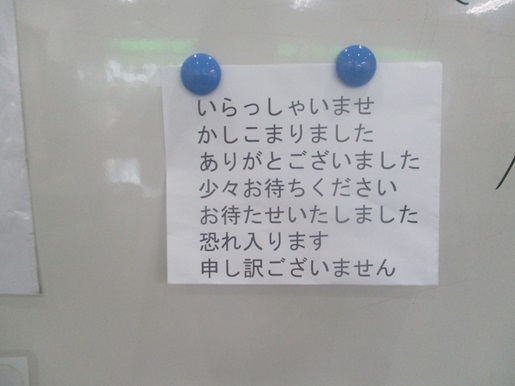 いらっしゃいませ
かしこまりました
ありがとございました
少々お待ちください
お待たせいたしました
恐れ入ります
申し訳ございません